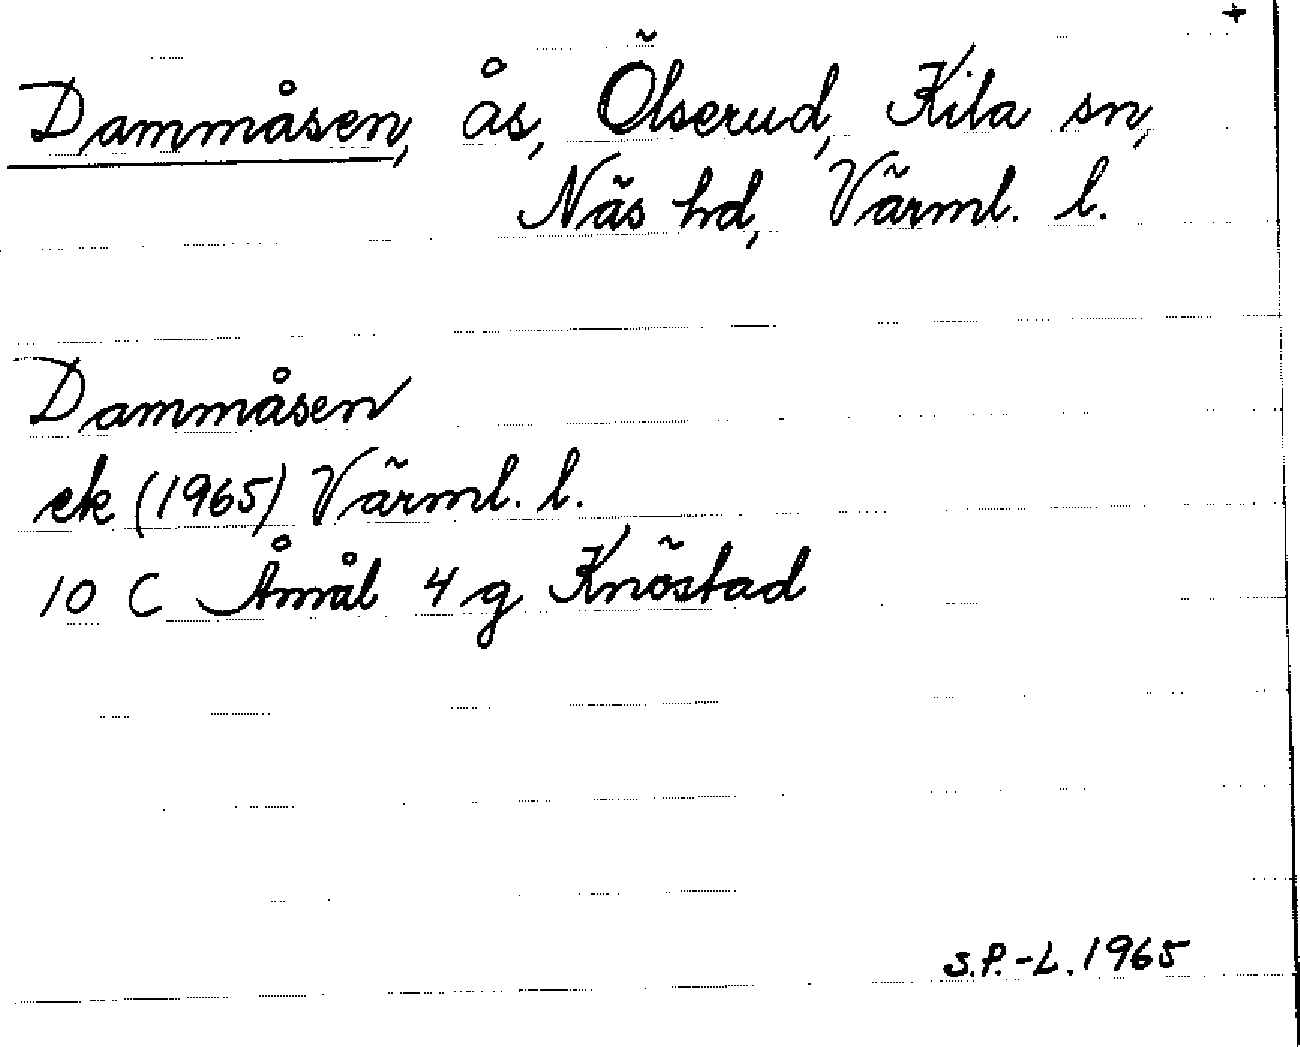 +
Dammåsen, ås, Ölserud, Kila sn,
Näs hd, Värml. l.
Dammåsen
ek (1965) Värml. l.
10 C Åmål 4 g Knöstad
S.P.-L. 1965